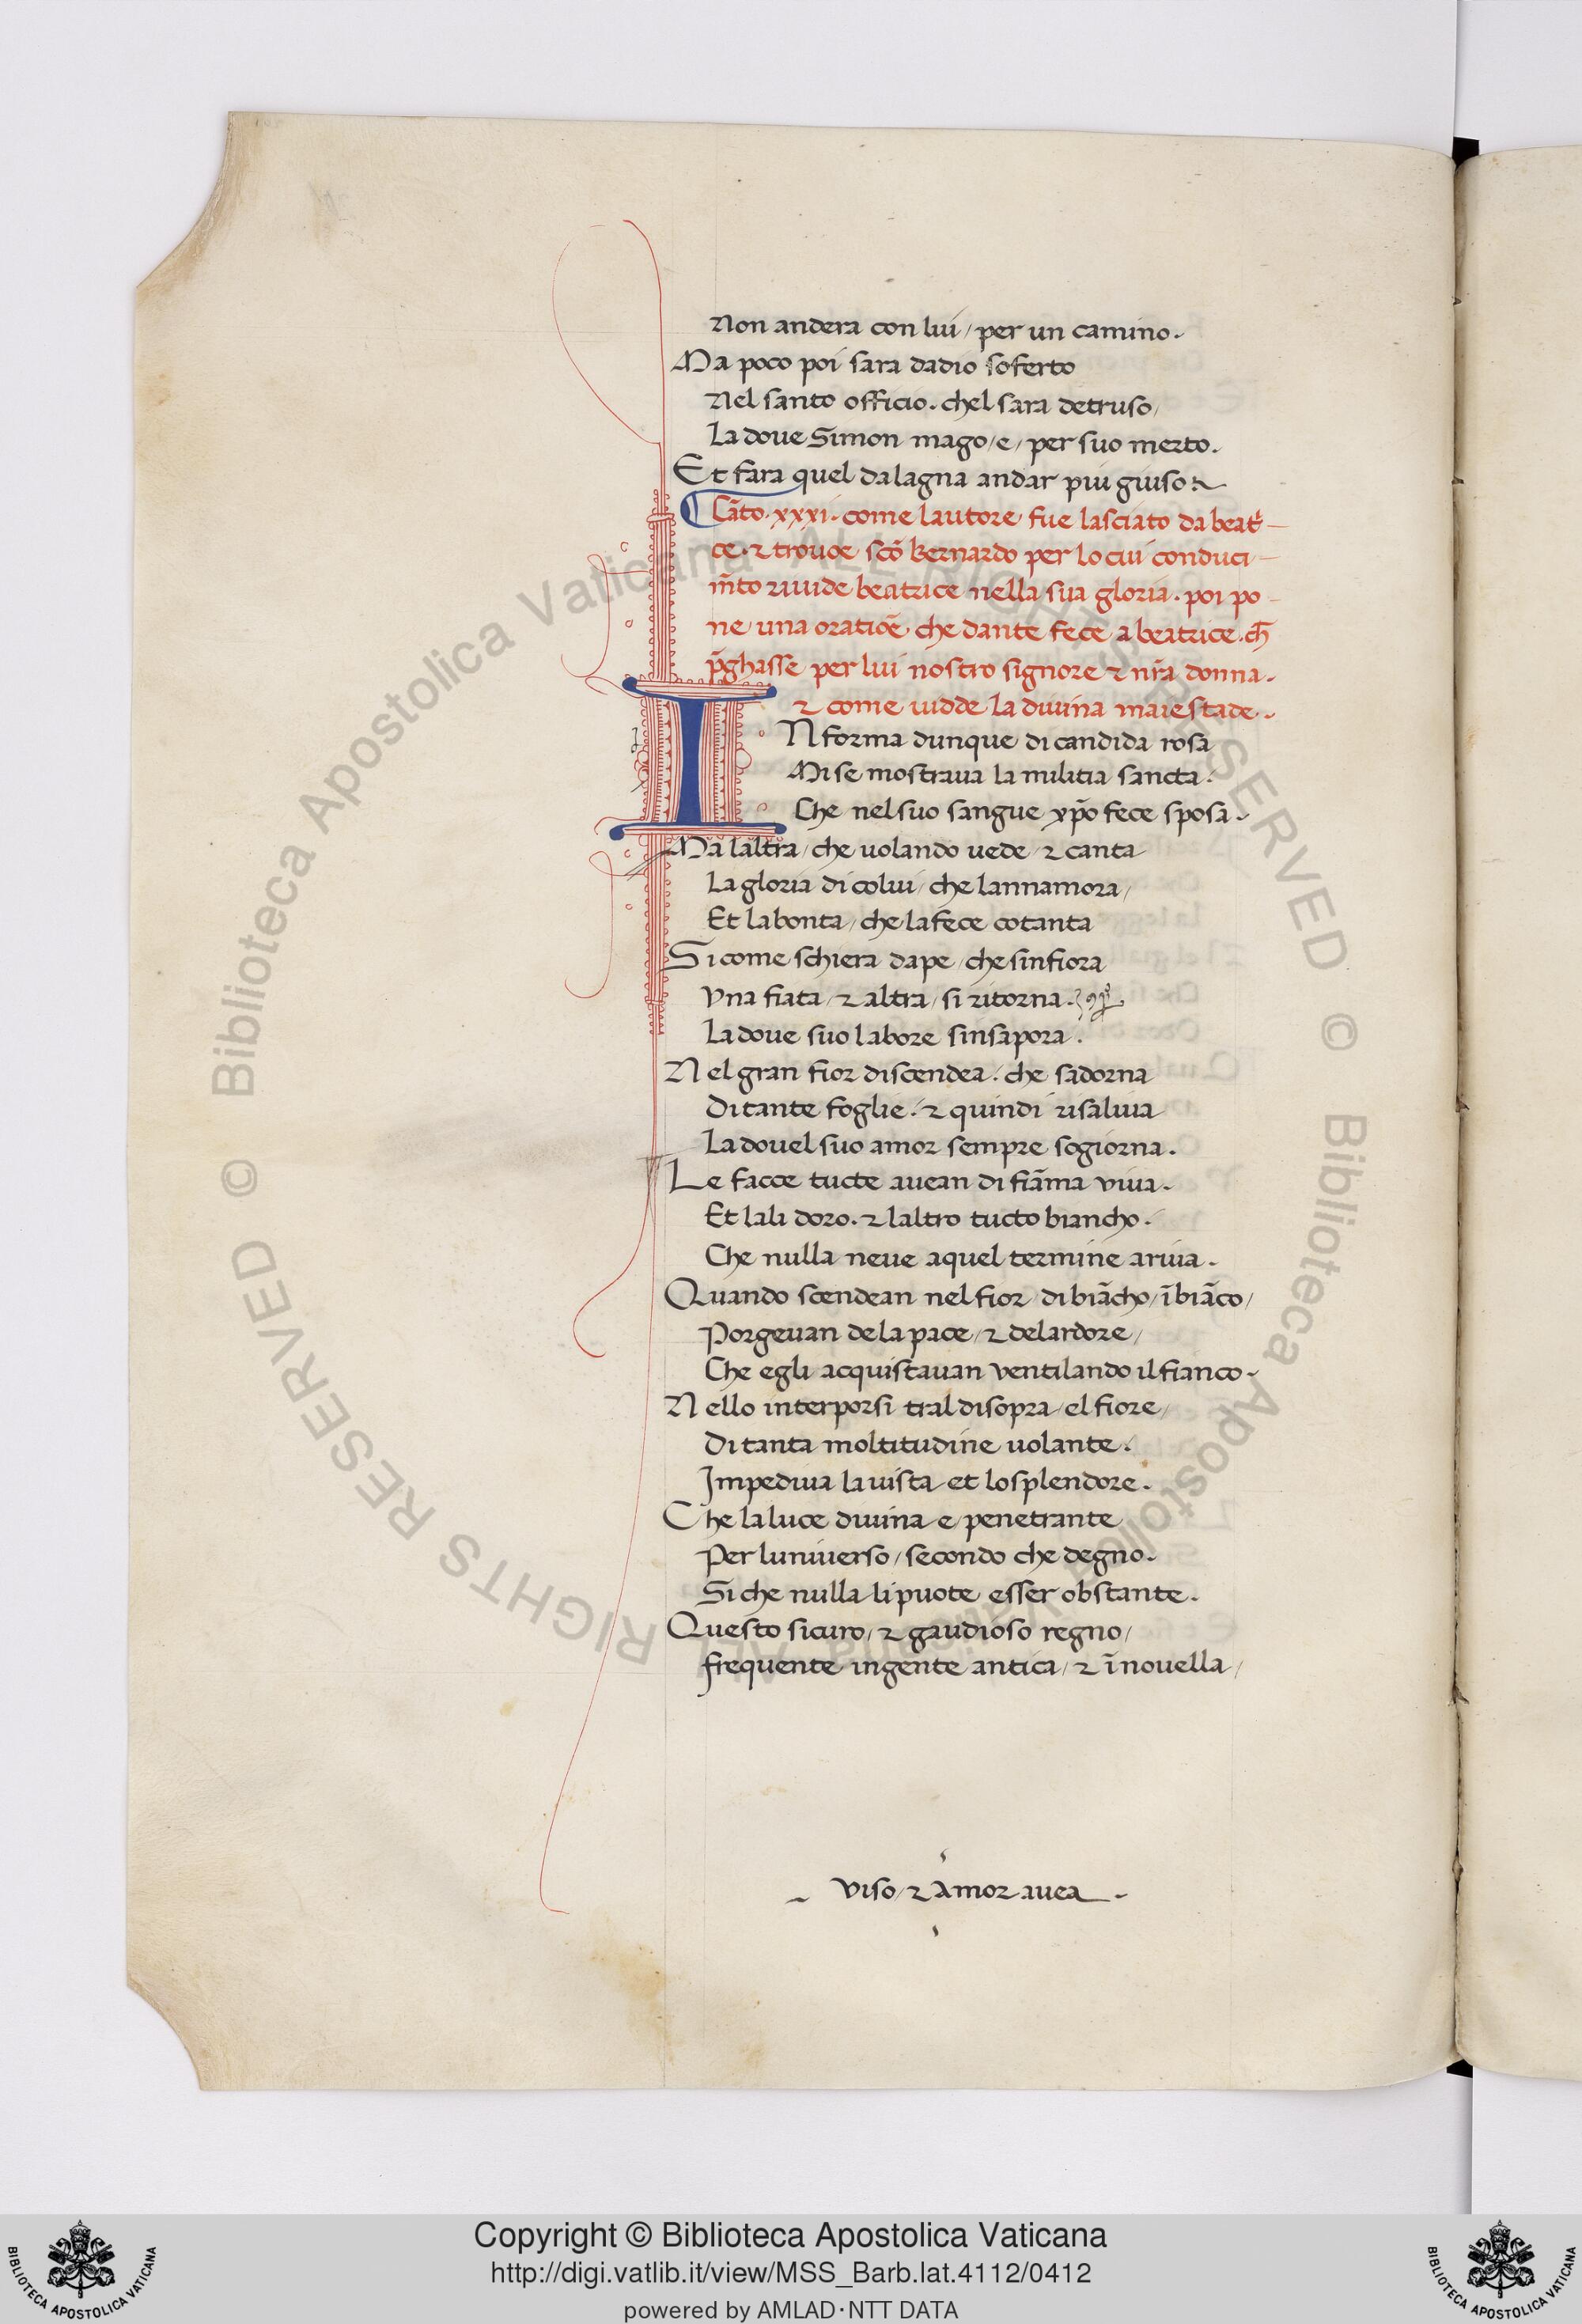 Non andera con lui / per un camino.
Ma poco poi sara dadio soferto
Nel santo officio. chel sara detruso /
La doue Simon mago / e / per suo merto.
Et fara quel dalagna andar piu giuso
Cāto. xxxi. come lautore fue lasciato da beatͥ
ce. ⁊ trouoe scō Bernardo per lo cui conduci
m̄to riuide beatrice nella sua gloria. poi po
ne una oratiōe che dante fece a beatrice. ch̄
p̄ghasse per lui nostro signore ⁊ nr̄a donna.
⁊ come uidde la diuina maiestade.
IN forma dunque di candida rosa
Mi se mostraua la militia sancta.
Che nel suo sangue xp̄o fece sposa.
Ma laltra / che uolando uede / ⁊ canta
La gloria di colui / che lannamora /
Et la bonta / che la fece cotanta
Si come schiera dape / che sinfiora
Vna fiata / ⁊ altra / si ritorna.
La doue suo labore sinsapora.
Nel gran fior discendea. che sadorna
Di tante foglie. ⁊ quindi risaliua
La douel suo amor sempre sogiorna.
Le facce tucte auean di fiāma viua.
Et lali doro. ⁊ laltro tucto biancho.
Che nulla neue a quel termine ariua.
Quando scendean nel fior / di biācho / ī biāco /
Porgeuan de la pace / ⁊ delardore /
Che egli acquistauan ventilando il fianco.
Nello interporsi tral disopra / el fiore /
Di tanta moltitudine uolante.
Impediua la uista et lo splendore.
Che la luce diuina e penetrante
Per luniuerso / secondo che degno.
Si che nulla li puote esser obstante.
Questo sicuro / ⁊ gaudioso regno /
frequente in gente antica / ⁊ ī nouella /
viso / ⁊ Amor auea
Copyright © Biblioteca Apostolica Vaticana
http://digi.vatlib.it/view/MSS_Barb.lat.4112/0412
powered by AMLAD·NTT DATA
BIBLIOTECA APOSTOLICA VATICANA
BIBLIOTECA APOSTOLICA VATICANA
© Biblioteca Apostolica Vaticana ALL RIGHTS RESERVED
© Biblioteca Apostolica Vaticana ALL RIGHTS RESERVED